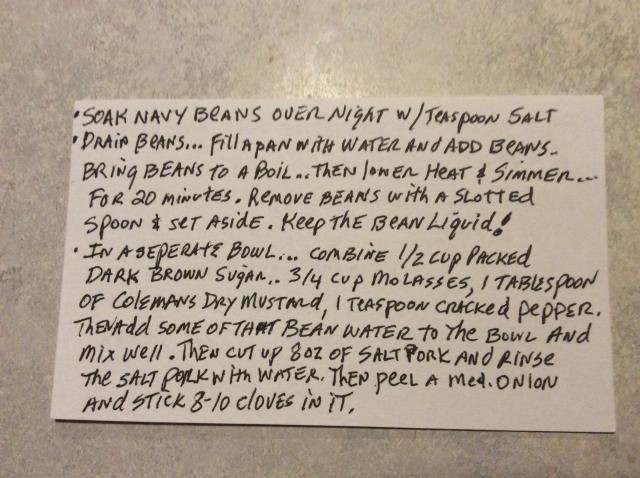 • SOAK NAVY BEANS OVER NIGHT W/TEASPOON SALT
• DRAIN BEANS... Fill A PAN WITH WATER AND ADD BEANS..
BRING BEANS TO A BOIL... THEN LOWER HEAT & SIMMER...
FOR 20 MINUTES. REMOVE BEANS WITH A SLOTTED
SPOON & SET ASIDE. KEEP THE BEAN LIQUID!
• IN A SEPERATE BOWL... COMBINE 1/2 CUP PACKED
DARK BROWN SUGAR.. 3/4 CUP MOLASSES, 1 TABLESPOON
OF COLEMANS DRY MUSTARD, 1 TEASPOON CRACKED PEPPER.
THEN ADD SOME OF THAT BEAN WATER TO THE BOWL AND
MIX WELL. THEN CUT UP 8 OZ OF SALT PORK AND RINSE
THE SALT PORK WITH WATER. THEN PEEL A MED. ONION
AND STICK 8-10 CLOVES IN IT.